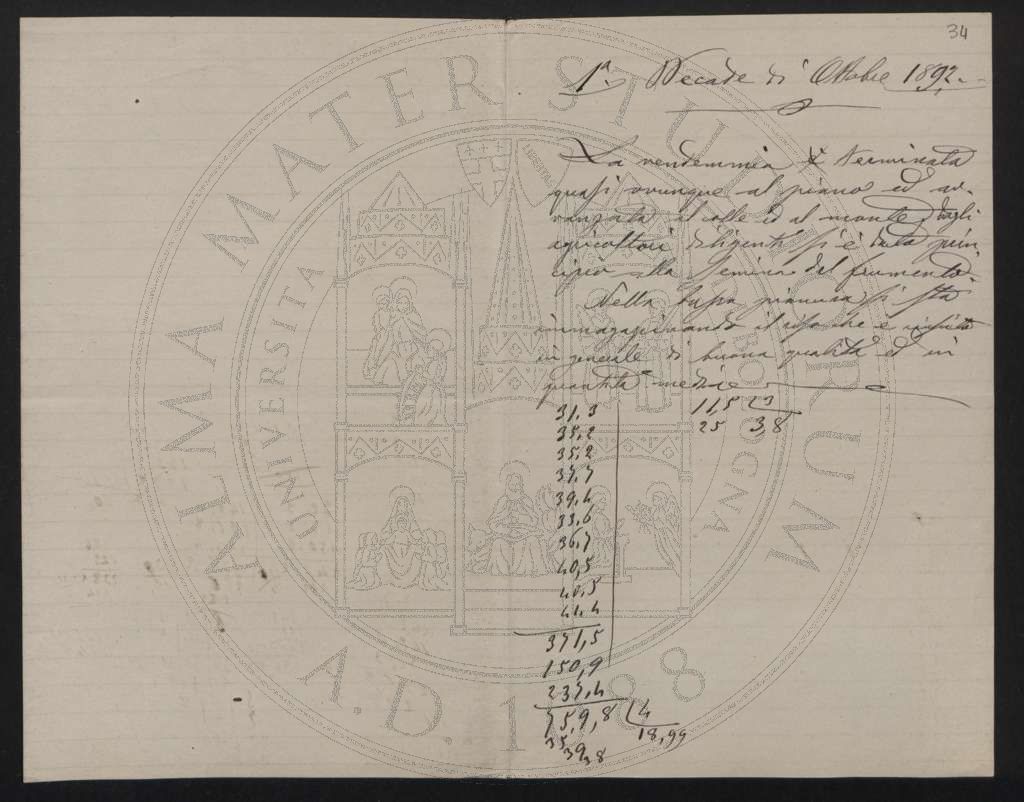 34
1ª Decade di Ottobre 1892.
La vendemmia è terminata
quasi ovunque al piano ed av-
vanzata al colle ed al monte, dagli
agricoltori diligenti si è dato prin
cipio alla semina del frumento.
Nella bassa pianura si sta
immagazzinando il riso che è
in generale di buona qualità ed in
quantità medie
31,3
35,2
35,2
37,7
39,4
33,6
36,7
40,5
40,5
41,4
371,5
150,9
237,4
75,9,8 4
35 18,99
39
38
11,5 3
25 3,8
ALMA MATER STUDIORUM
UNIVERSITA
BOLOGNA
A.D. 1088